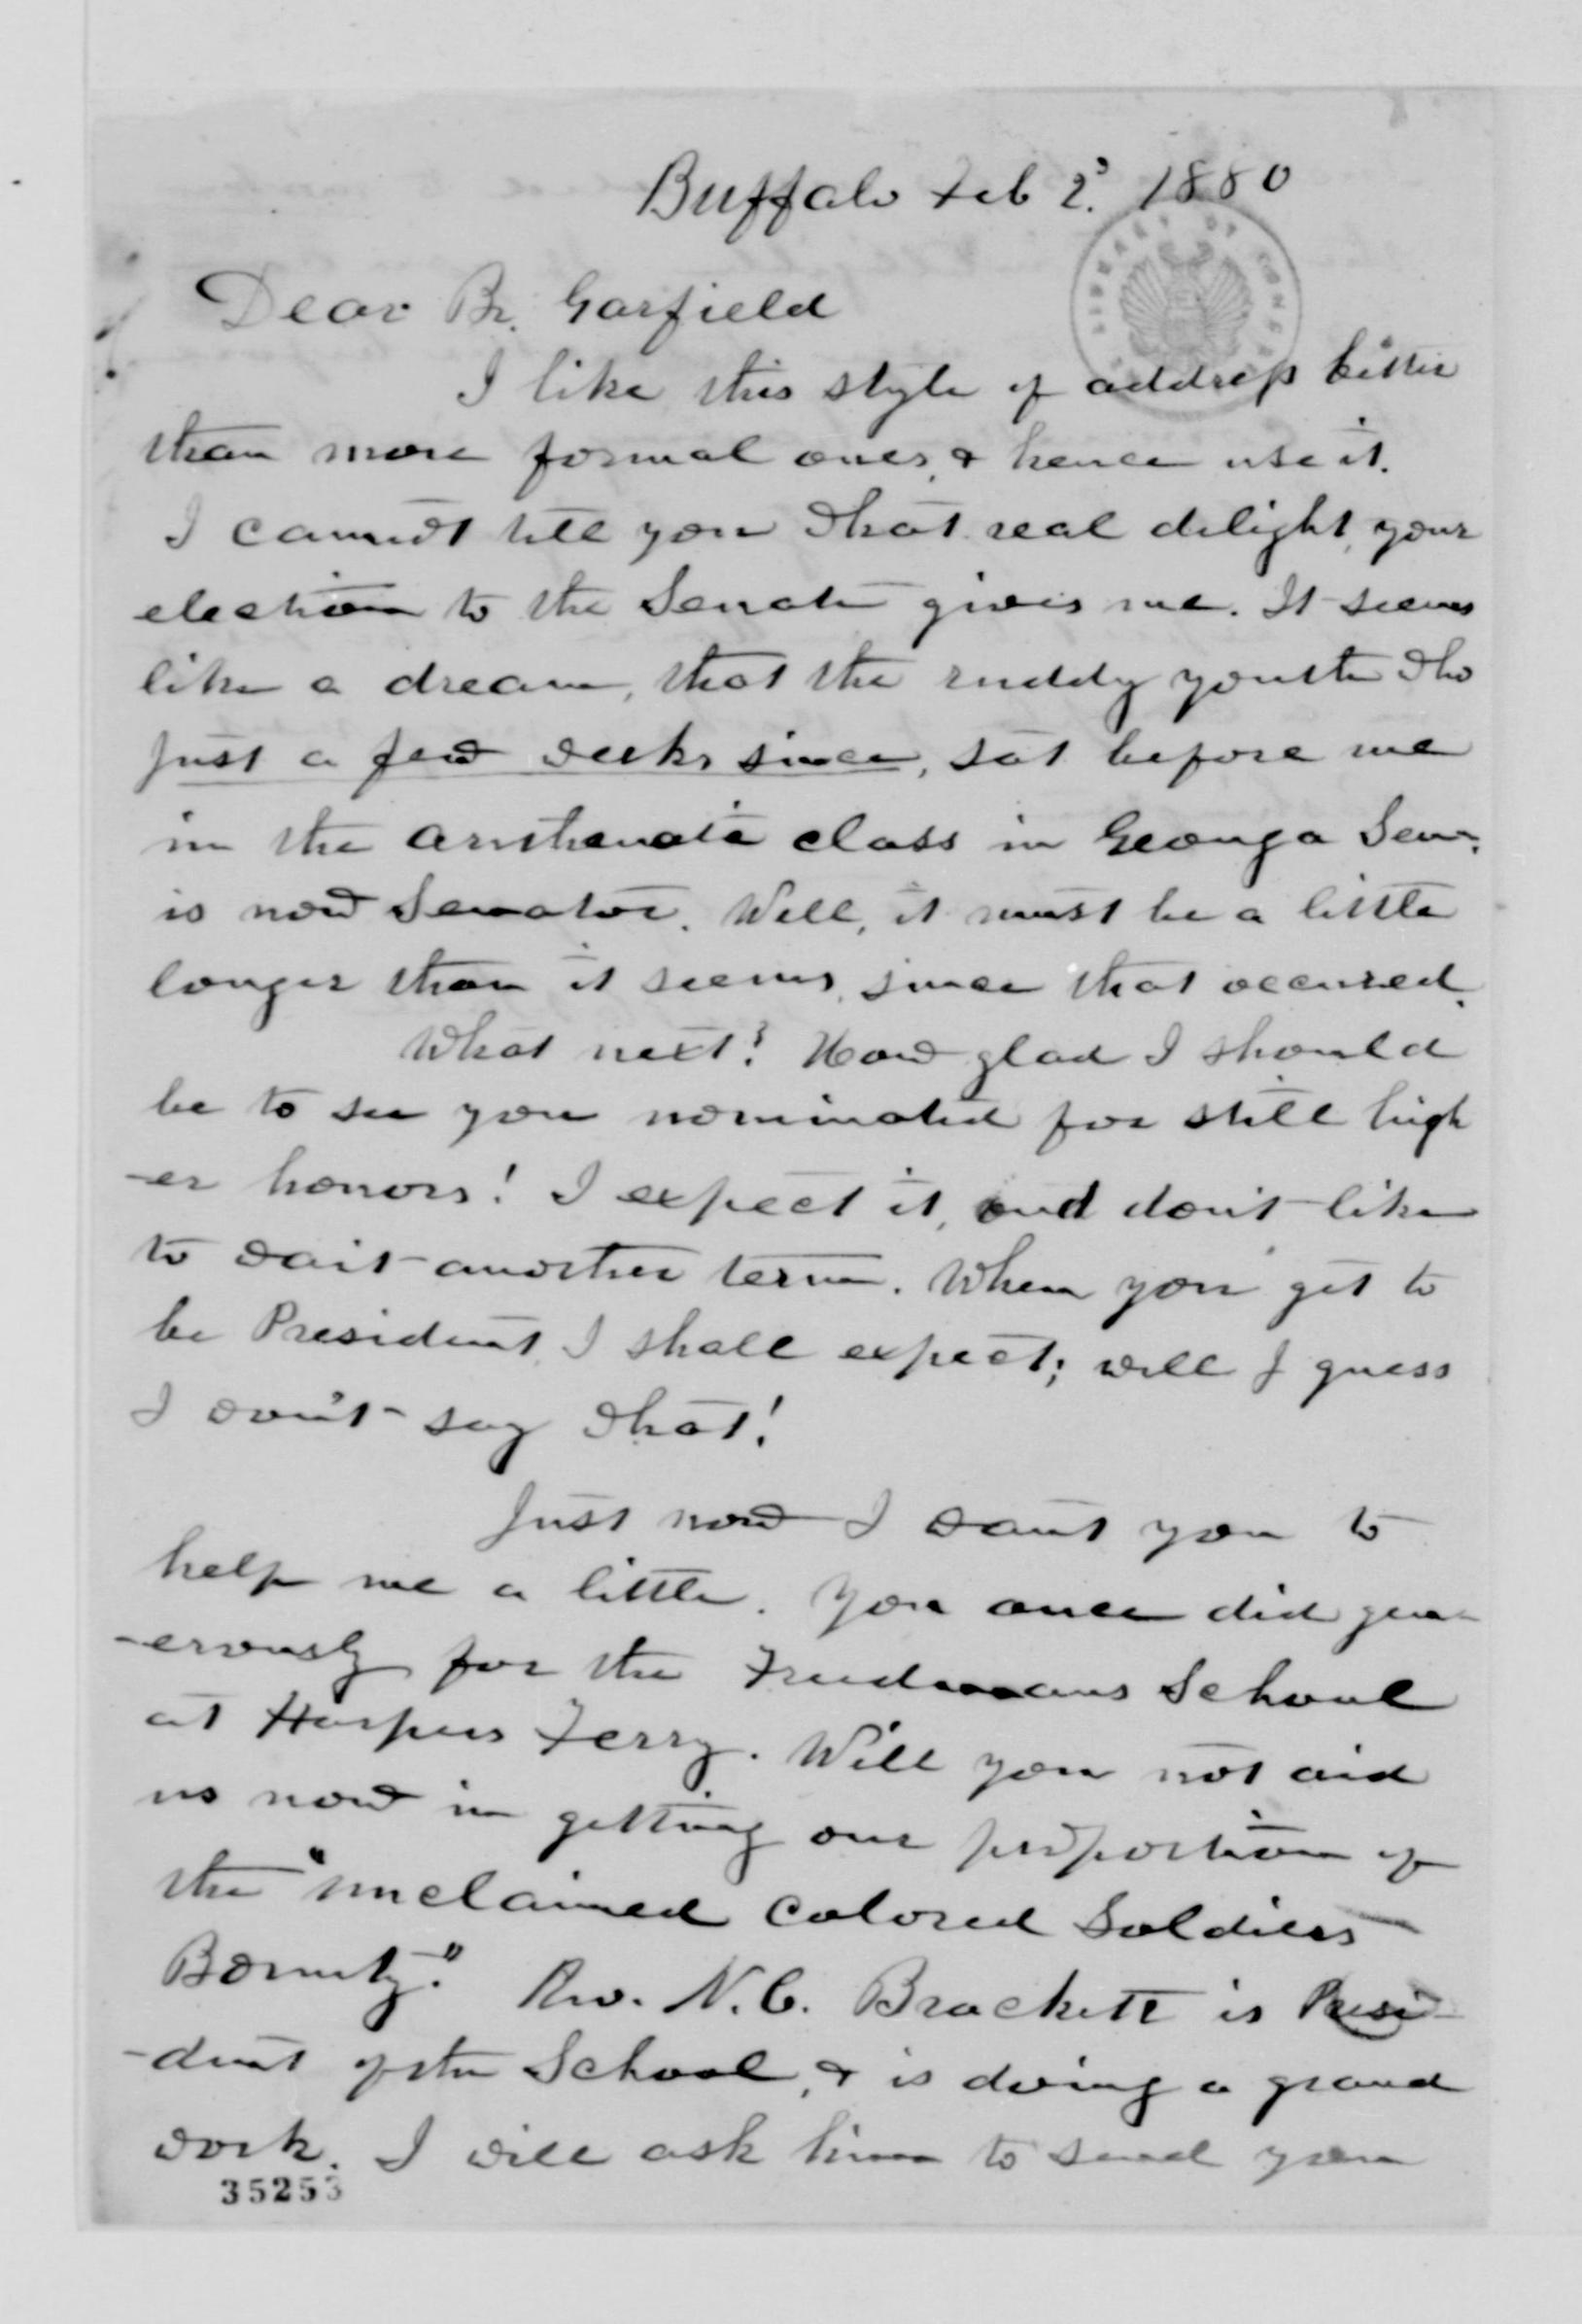 Buffalo Feb 2. 1880
Dear Br. Garfield
I like this style of address better
than more formal ones, & hence use it.
I cannot tell you what real delight, your
election to the Senate gives me. It seems
like a dream, that the ruddy youth who
just a few weeks since, sat before me
in the class in Geauga Sem.
is now Senator. Well, it must be a little
longer than it seems, since that occured.
What next? How glad I should
be to see you nominated for still high
-er honors! I expect it, and don't like
to wait another term. When you get to
be President, I shall expect; well I guess
I won't say what!
Just now I want you to
help me a little. You once did gen-
-erously for the Freedmans School
at Harpers Ferry. Will you not aid
us now in getting our proportion of
the "unclaimed Colored Soldiers
Bounty." Rev. N.C. Brackett is Presi-
-dent of the School, & is doing a grand
work. I will ask him to send you
35253
LIBRARY OF CONGRESS